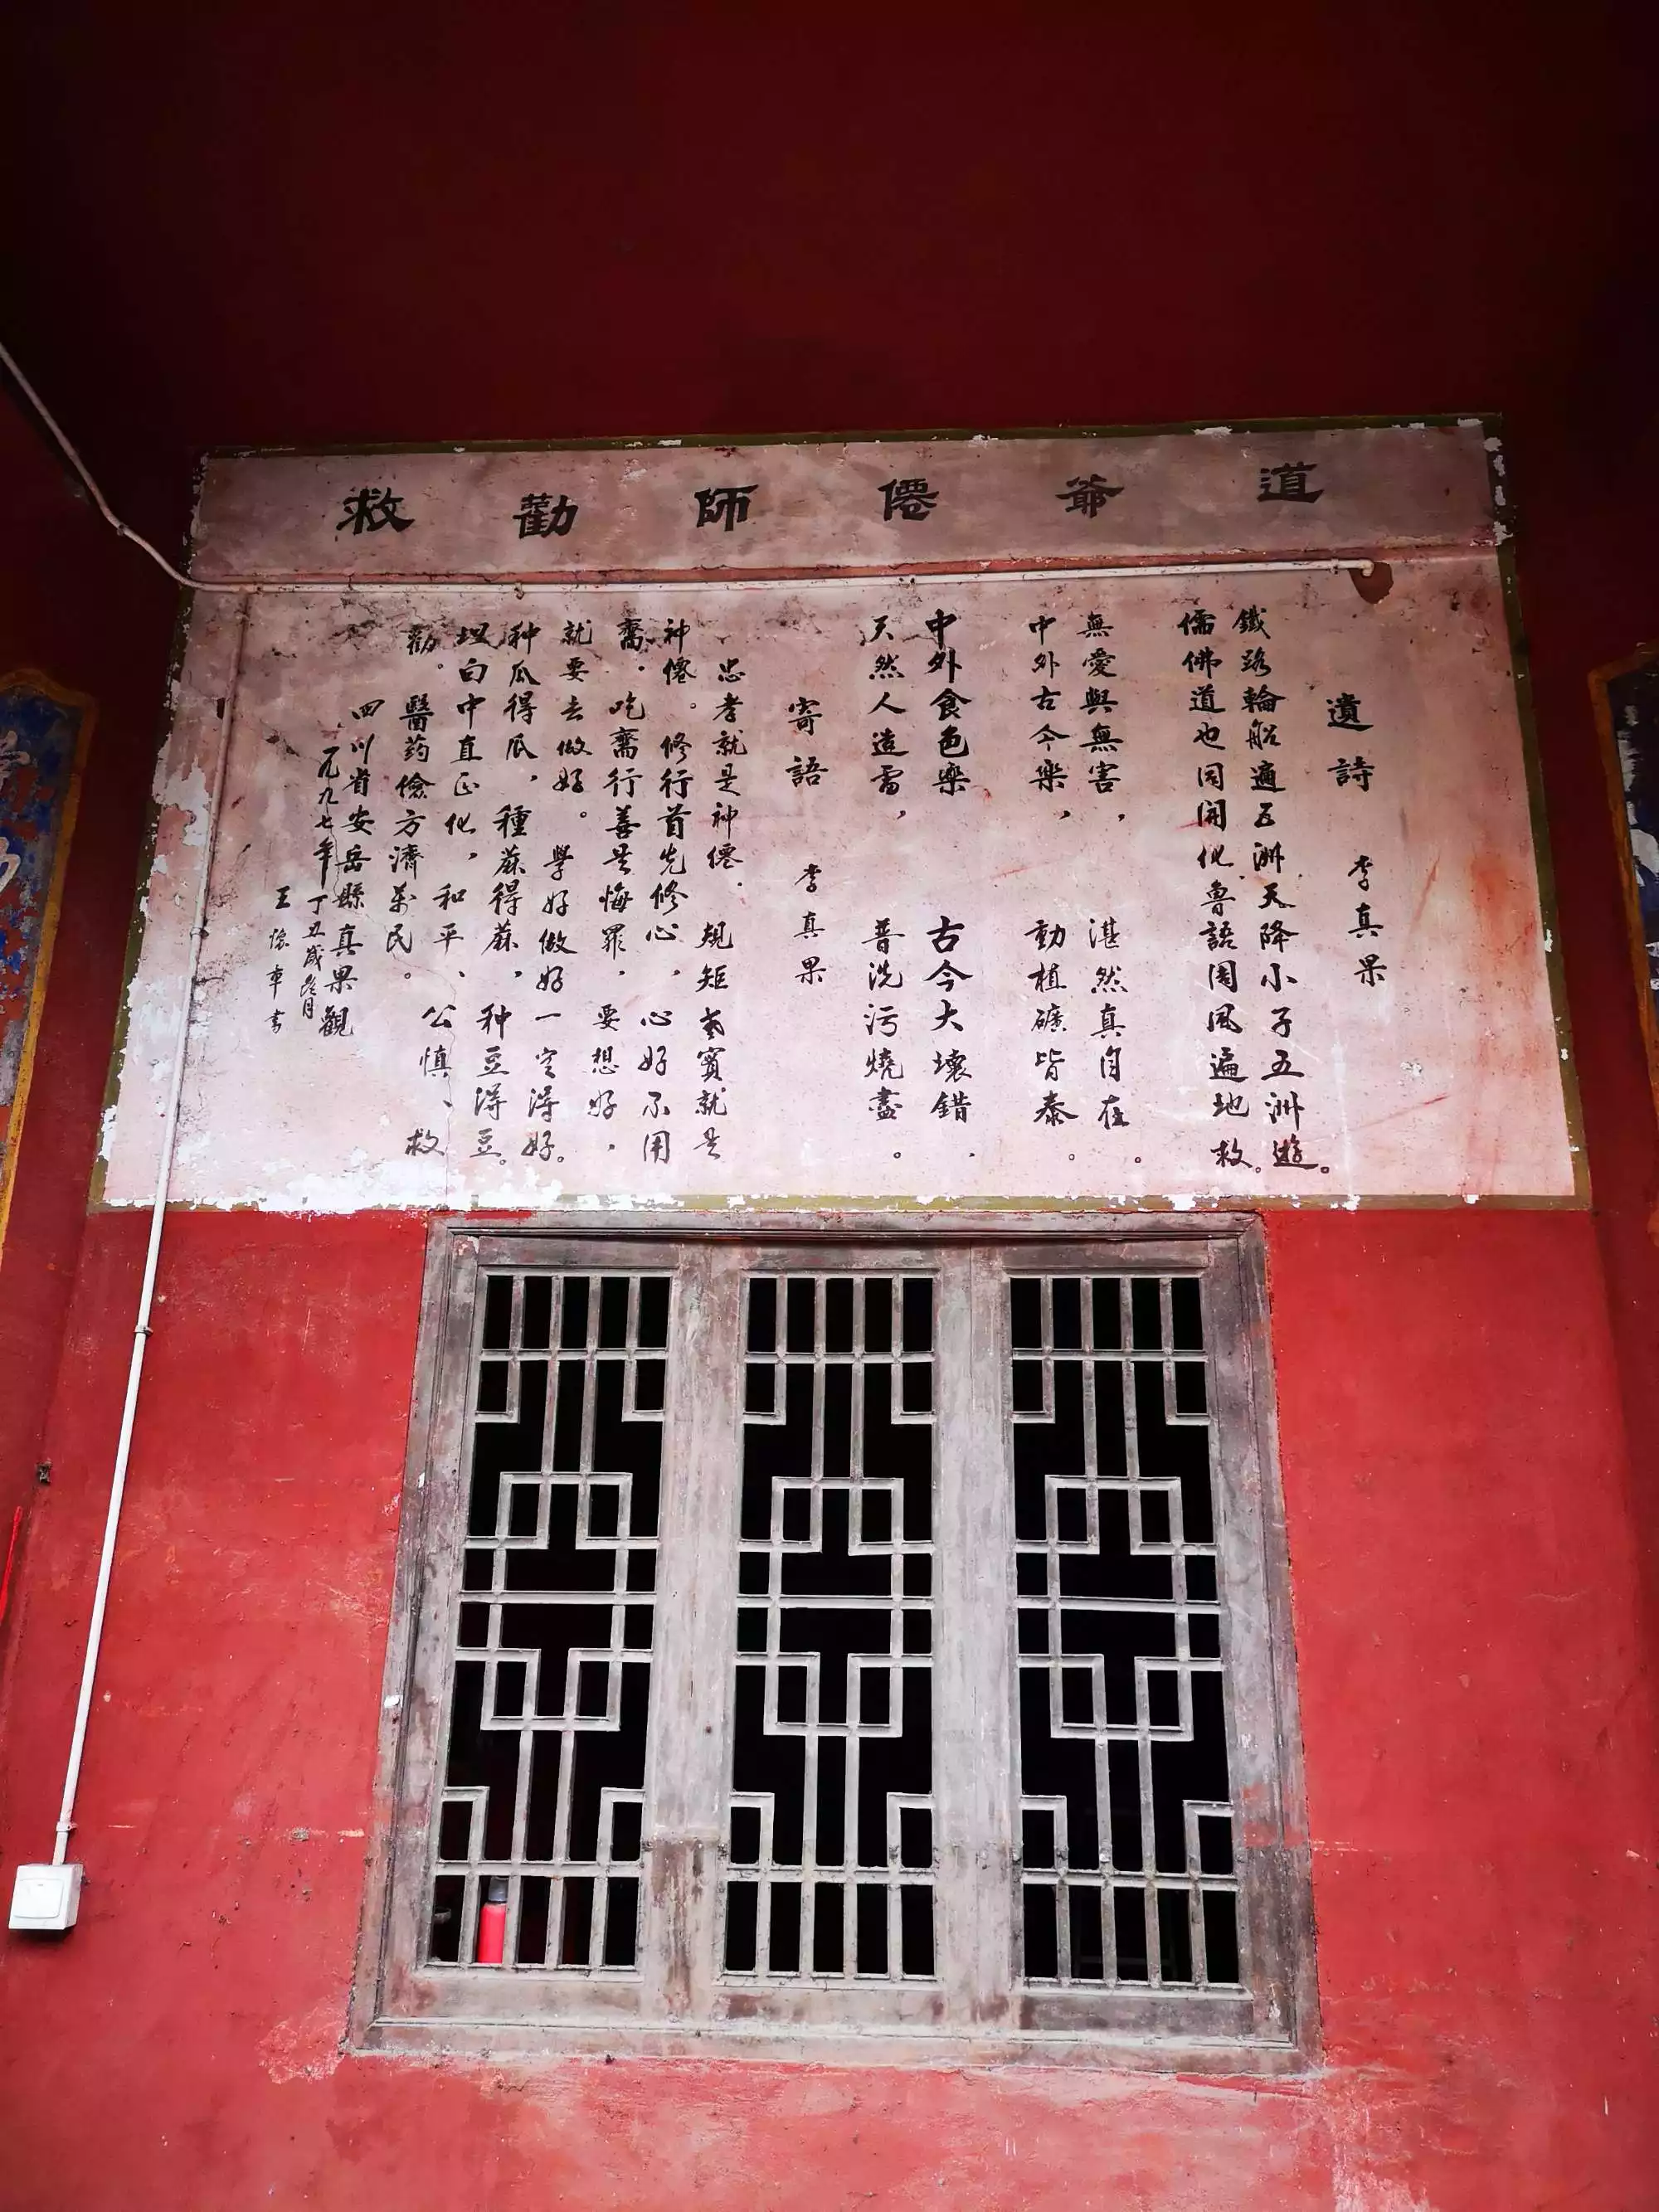 道爺僊師勸救
遺詩 李真果
鐵路輪船適五洲天降小子五洲遊。
儒佛道也同開化魯語國風遍地救。
無愛與無害，湛然真自在。
中外古今楽，動植礦皆泰。
中外食色楽 古今大壞錯．
天然人造雷，普洗污燒盡。
寄語 李真果
忠孝就是神僊．規矩老實就是
神僊。修行首先修心，心好不用
齋．吃齋行善是悔罪，要想好，
就要去做好。學好做好一定得好。
种瓜得瓜，種蔴得蔴，种豆得豆。
坦白中直正化，和平、公慎、救
勸。醫药儉方濟萬民。
四川省安岳縣真果觀
一九九七年丁丑歲冬月
王 章 書